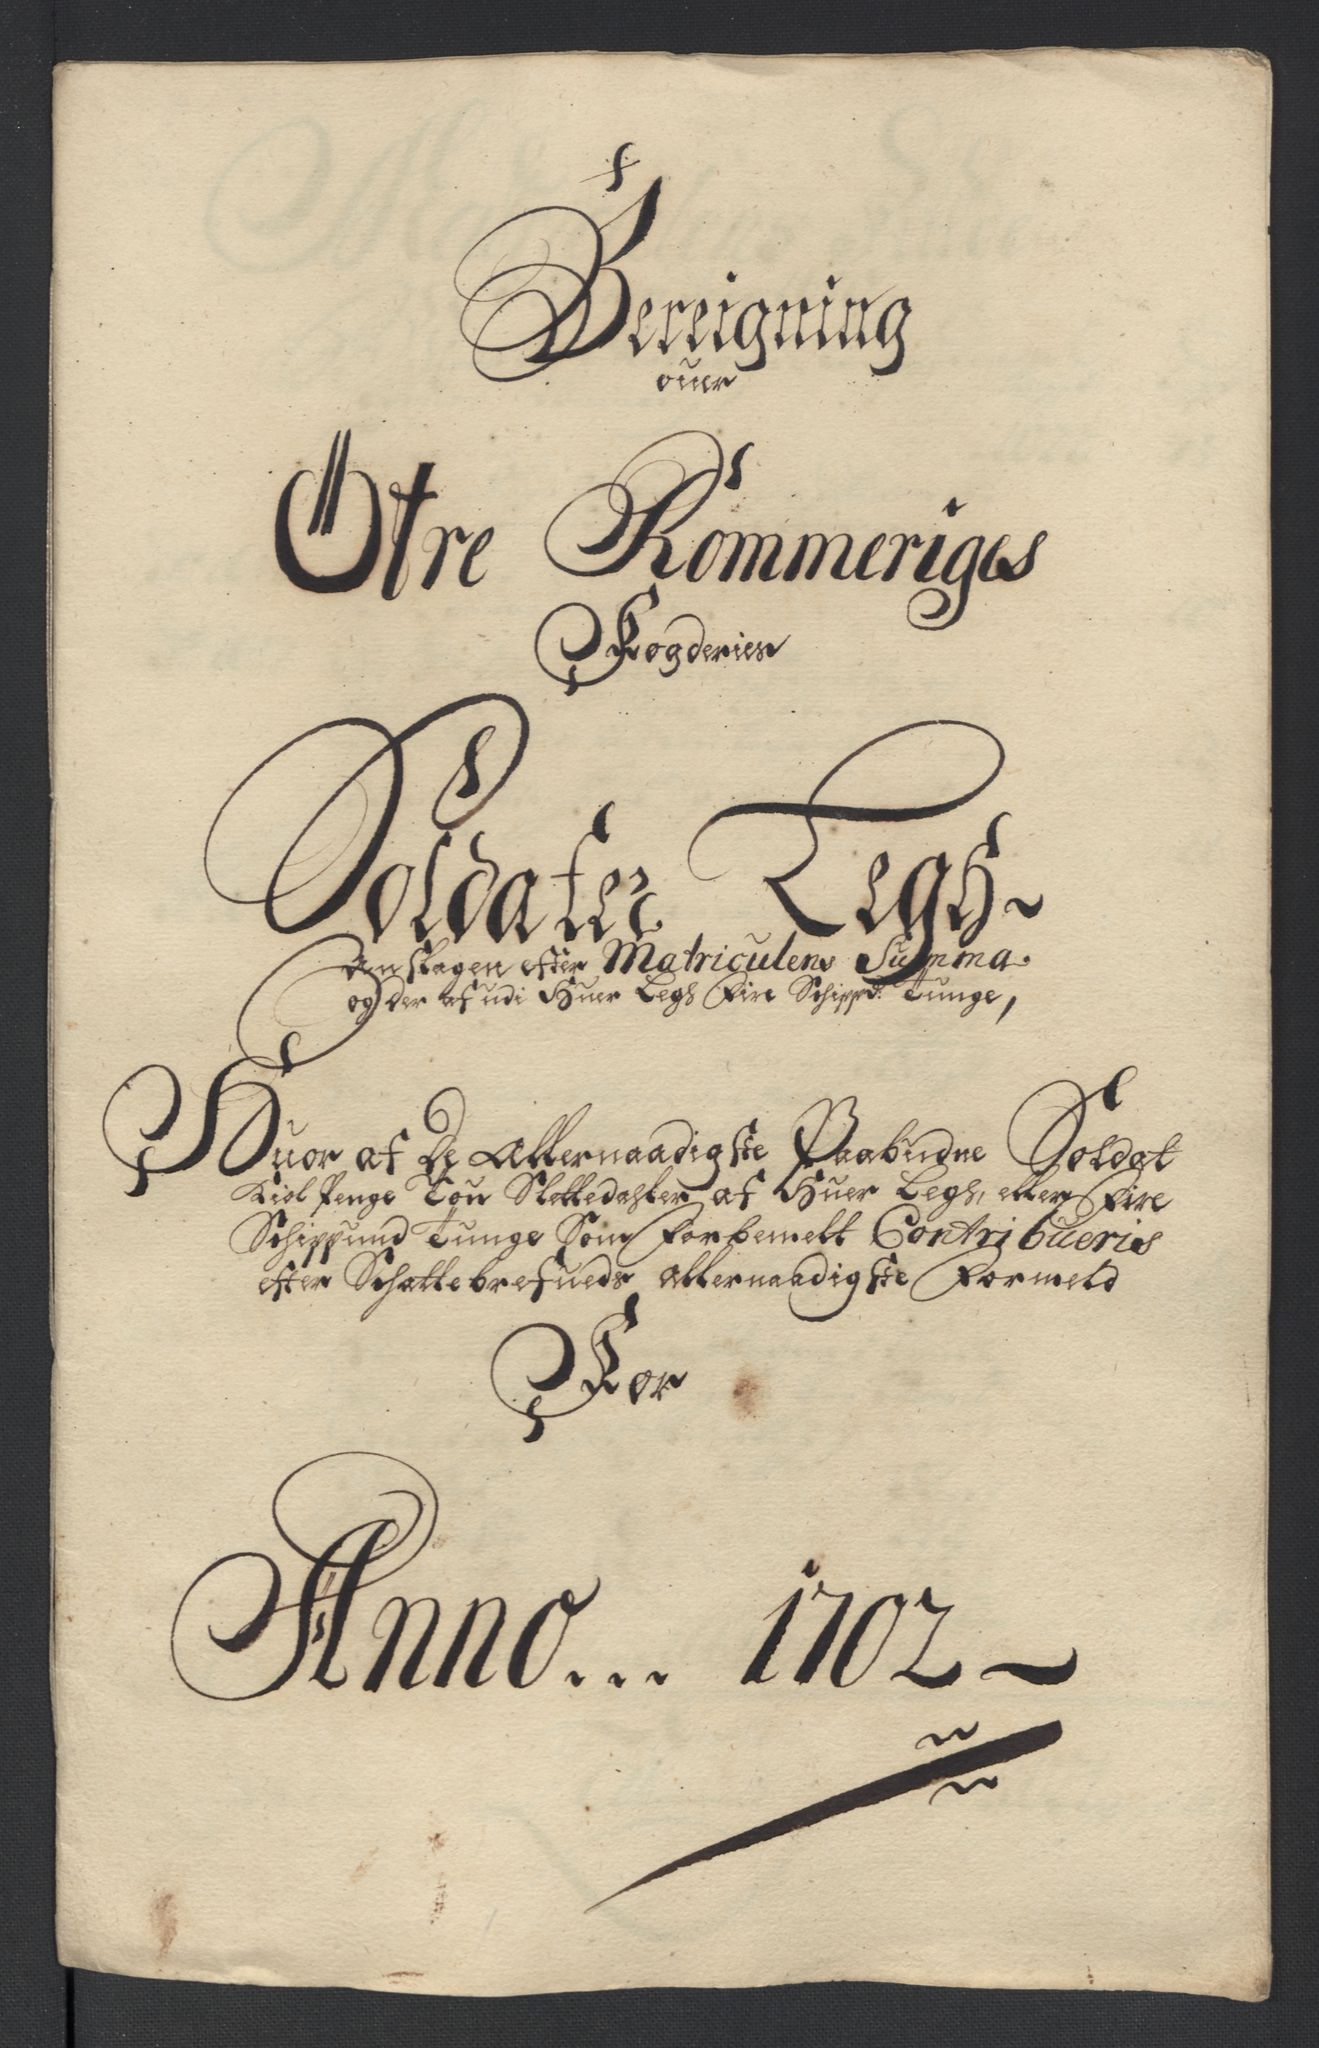 Bereigning
ouer
Öfre Rommeriges
Fogderies
Soldater Legh
Anslagen efter Matriculens Summa
og der af udi Huer Legh Fire Schippd. Tunge,
Huor af De Allernaadigste Paabudne Soldat
Kiol Penge Tou Slettedahler af Huer Legh, eller Fire
Schippund Tunge Som Forbemelt Contribueris
efter Schattebrefueds allernaadigste Formeld
For
Anno... 1702